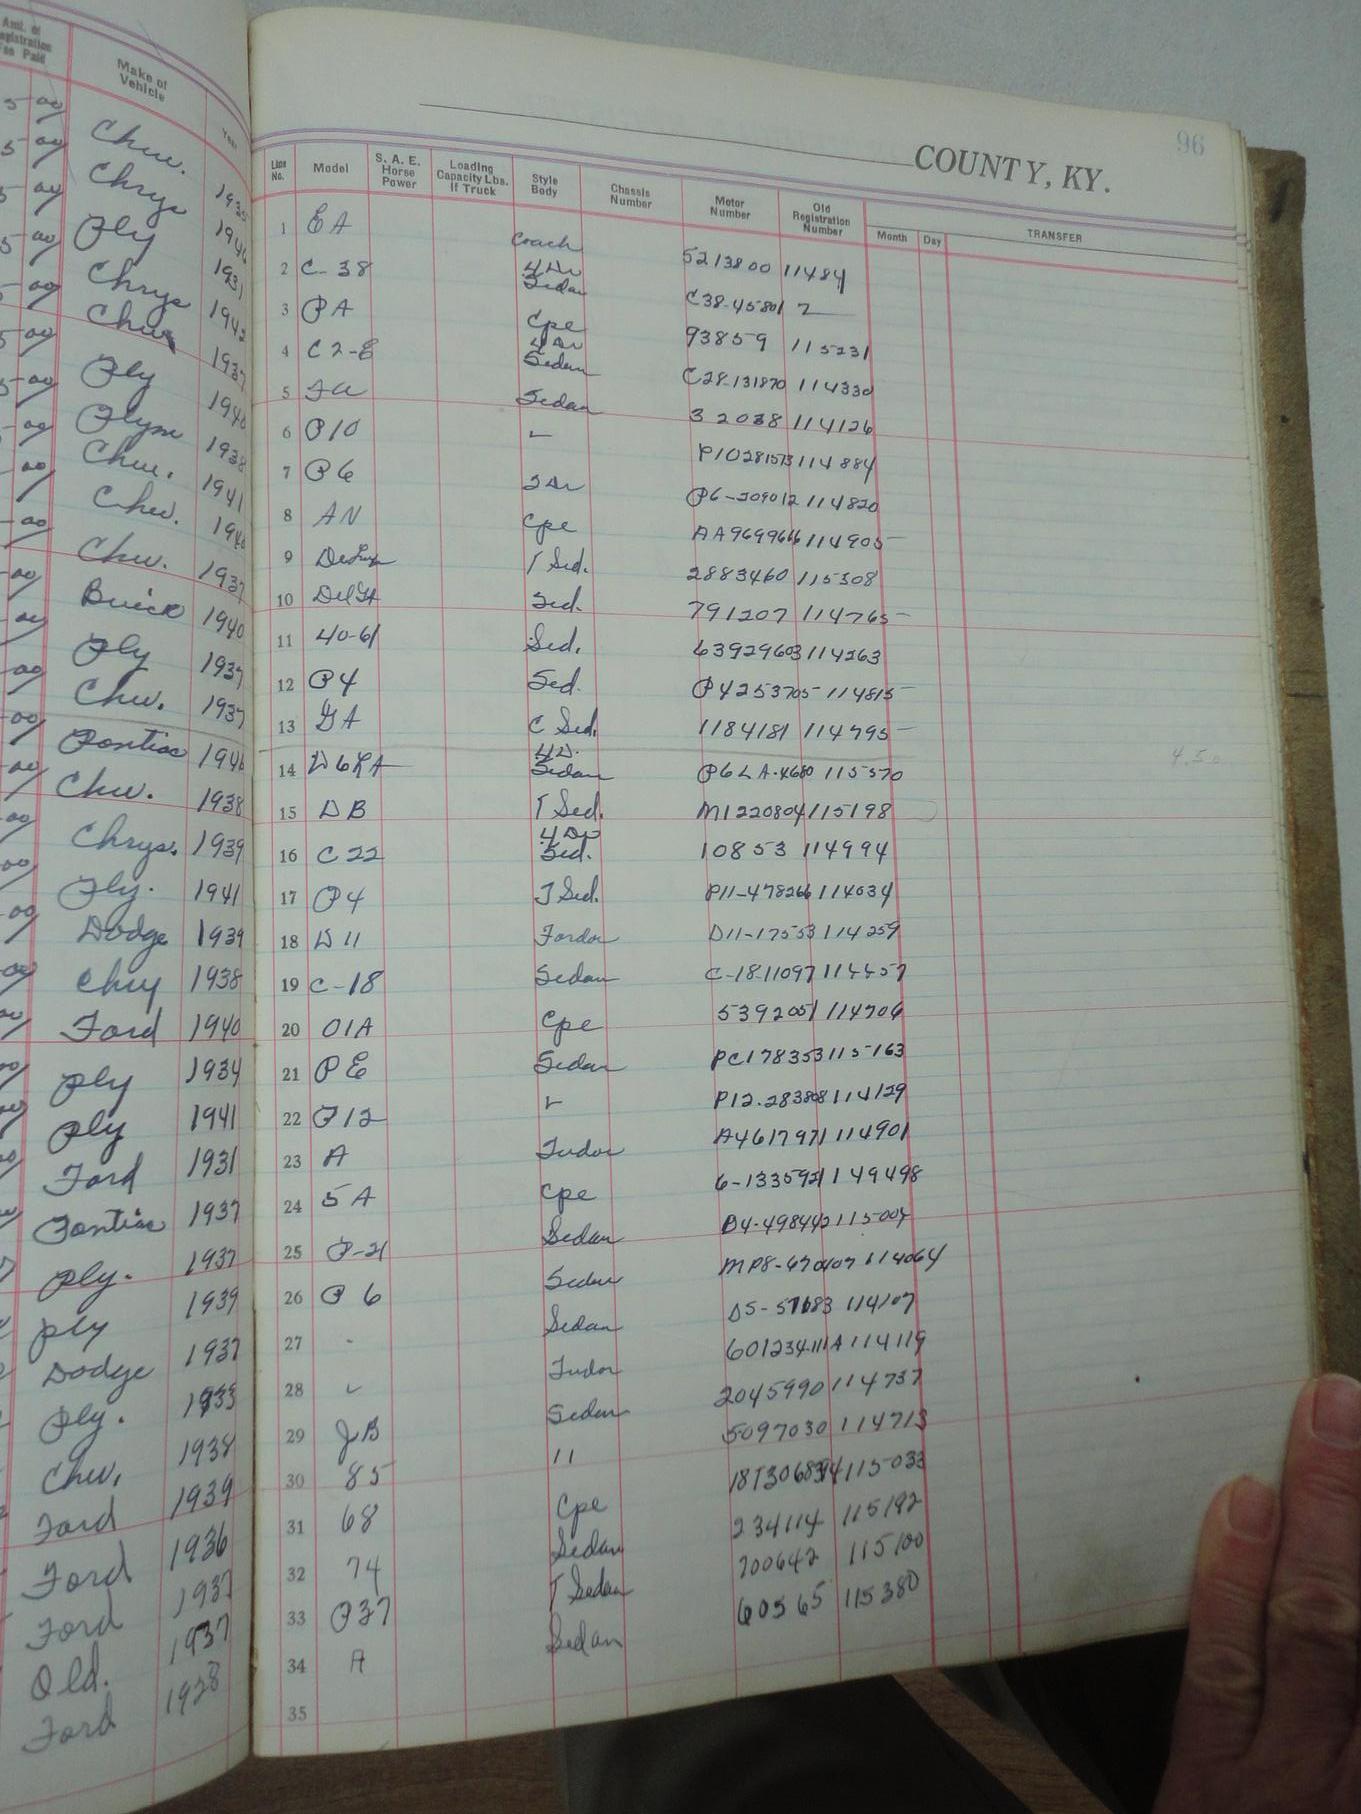 Amt. of Registration Fee Paid | Make of Vehicle | Year
5 00 | Chev. | 1935
5 00 | Chrys | 1946
5 00 | Ply | 1931
5 00 | Chrys | 1942
5 00 | Chev | 1937
5 00 | Ply | 1940
00 | Plym | 1938
00 | Chev. | 1941
00 | Chev. | 1940
00 | Chev. | 1937
00 | Buick | 1940
00 | Ply | 1937
00 | Chev. | 1937
00 | Pontiac | 1946
00 | Chev. | 1938
00 | Chrys. | 1939
00 | Ply. | 1941
00 | Dodge | 1939
00 | Chry | 1938
Ford | 1940
Ply | 1934
Ply | 1941
Ford | 1931
Pontiac | 1937
Ply. | 1937
Ply | 1939
Dodge | 1937
Ply. | 1933
Chev. | 1938
Ford | 1939
Ford | 1936
Ford | 1937
Old. | 1937
Ford | 1928
96
COUNTY, KY.
Line No. | Model | S. A. E. Horse Power | Loading Capacity Lbs. If Truck | Style Body | Chassis Number | Motor Number | Old Registration Number | Month | Day | TRANSFER
1 | EA | Coach | 5213800 | 11484
2 | C-38 | 4 Dr Sedan | C38-45801 | 2
3 | PA | Cpe | 93859 | 115231
4 | C2-E | 4 Dr Sedan | C28-131870 | 114330
5 | Sedan | 32038 | 114126
6 | P10 | P10281573 | 114884
7 | P6 | 2 Dr | P6-209012 | 114820
8 | AN | Cpe | AA969966 | 114905
9 | DeLux | T Sed. | 2883460 | 115308
10 | Sed. | 791207 | 114765
11 | 40-61 | Sed. | 63929603 | 114263
12 | P4 | Sed. | P4253705 | 114815
13 | GA | C Sed. | 1184181 | 114795
14 | D6LA | 4 D. Sedan | P6LA-4680 | 115370
15 | DB | T Sed. | M1220804 | 115198
16 | C22 | 4 Dr Sed. | 10853 | 114994
17 | P4 | T Sed. | P11-478266 | 114034
18 | D11 | Fordor | D11-17553 | 114259
19 | C-18 | Sedan | C-18-11097 | 114457
20 | 01A | Cpe | 5392051 | 114706
21 | PE | Sedan | PC178353 | 115163
22 | P12 | P12-283808 | 114129
23 | A | Tudor | A4617971 | 114901
24 | 5A | Cpe | 6-133592 | 1149498
25 | P-21 | Sedan | B4-498442 | 115004
26 | P6 | Sedan | MP8-670407 | 114064
27 | - | Sedan | D5-57683 | 114107
28 | Tudor | 601234111A | 114119
29 | JB | Sedan | 2045990 | 114737
30 | 85 | 11 | 5097030 | 114713
31 | 68 | Cpe | 115033
32 | 74 | Sedan | 234114 | 115192
33 | P37 | T Sedan | 700642 | 115100
34 | A | Sedan | 60565 | 115380
35